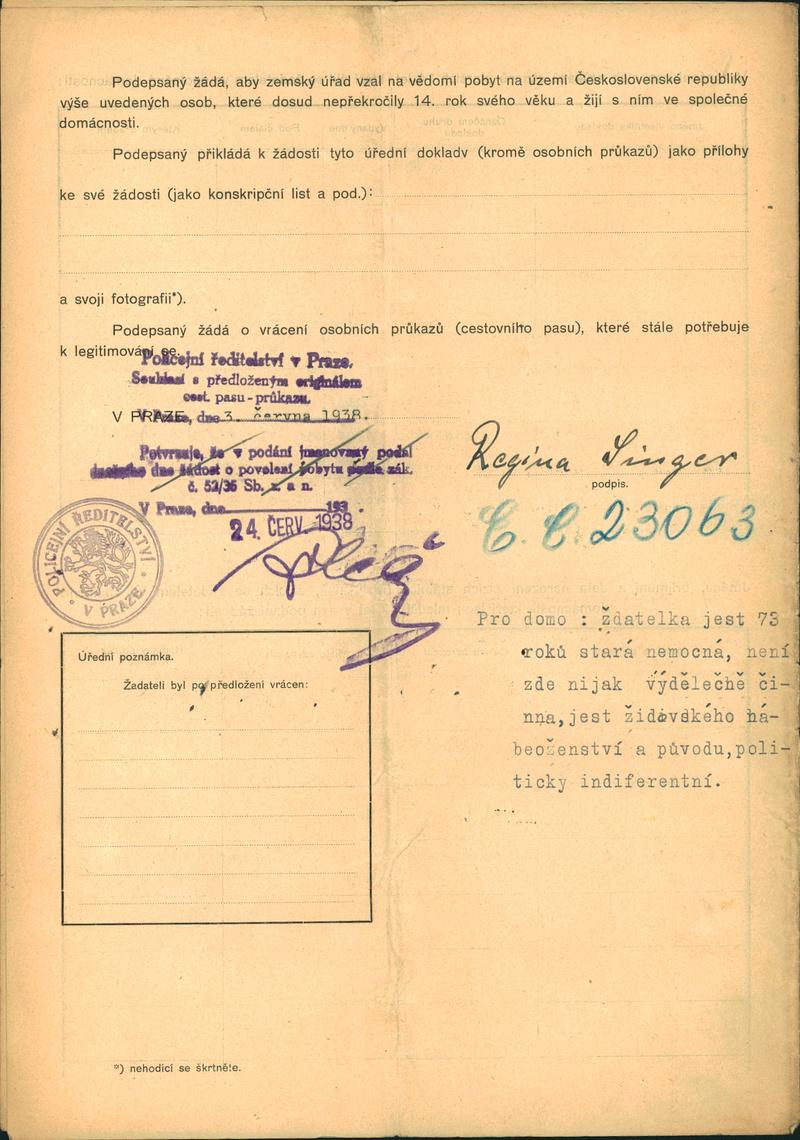 Podepsaný žádá, aby zemský úřad vzal na vědomí pobyt na území Československé republiky
výše uvedených osob, které dosud nepřekročily 14. rok svého věku a žijí s ním ve společné
domácnosti.
Podepsaný přikládá k žádosti tyto úřední doklady (kromě osobních průkazů) jako přílohy
ke své žádosti (jako konskripční list a pod.):
a svoji fotografii*).
Podepsaný žádá o vrácení osobních průkazů (cestovního pasu), které stále potřebuje
k legitimování se.
Policejní ředitelství v Praze.
Souhlasí s předloženým originálem
cest. pasu-průkazu.
V PRAZE, dne 3. června 1938.
Potvrzuje, že v podání jmenovaný podal
dnešního dne žádost o povolení pobytu podle zák.
č. 52/35 Sb. z. a n.
V Praze, dne 193 .
24. ČERV. 1938
Regina Singer
podpis.
Č. C. 23063
POLICEJNÍ ŘEDITELSTVÍ
V PRAZE
Pro domo : ždatelka jest 73
roků stará nemocná, není
zde nijak výdělečně či-
nna, jest židovského ná-
beoženství a původu, poli-
ticky indiferentní.
Úřední poznámka.
Žadateli byl po předložení vrácen:
*) nehodící se škrtněte.